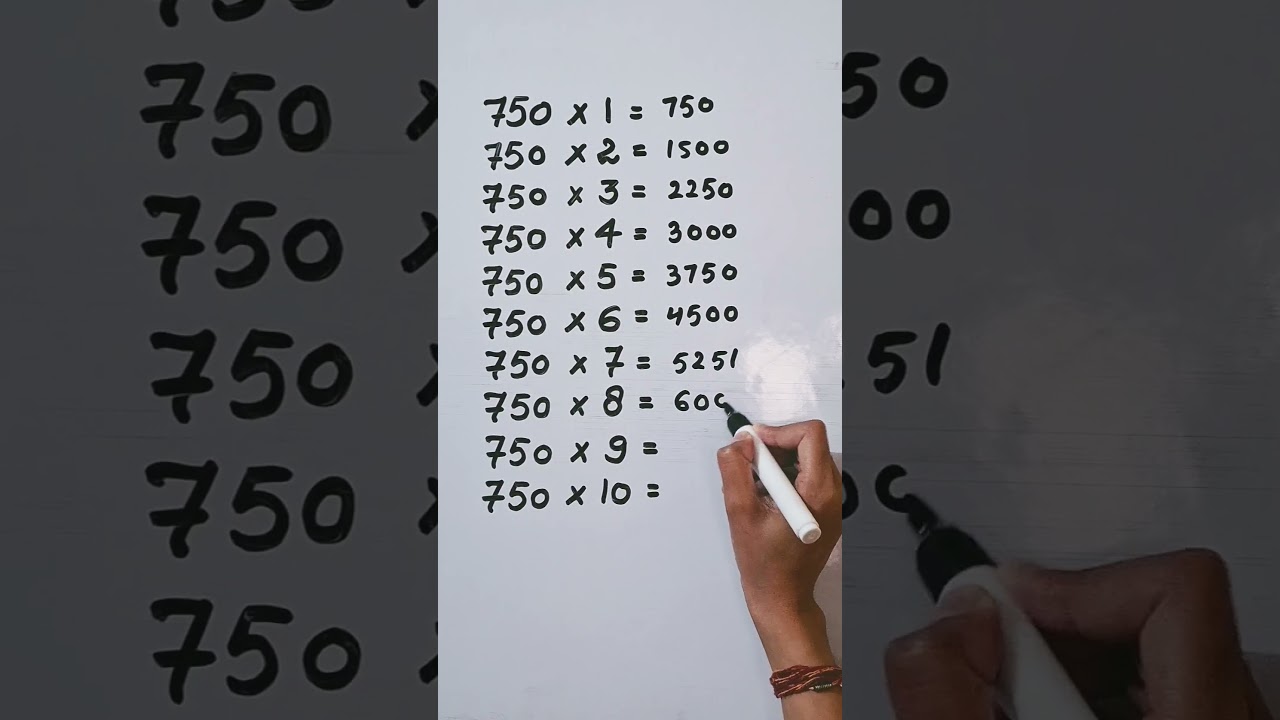 750 × 1 = 750
750 × 2 = 1500
750 × 3 = 2250
750 × 4 = 3000
750 × 5 = 3750
750 × 6 = 4500
750 × 7 = 5251
750 × 8 = 600
750 × 9 =
750 × 10 =